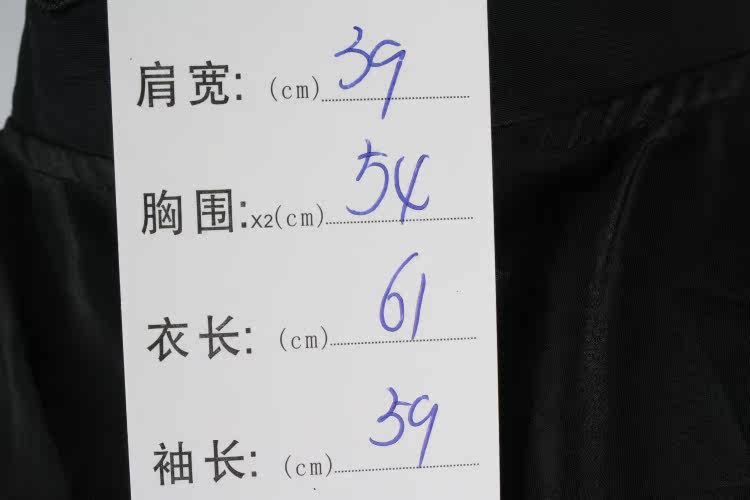 肩宽: (cm) 39
胸围:x2(cm) 54
衣长: (cm) 61
袖长: (cm) 59